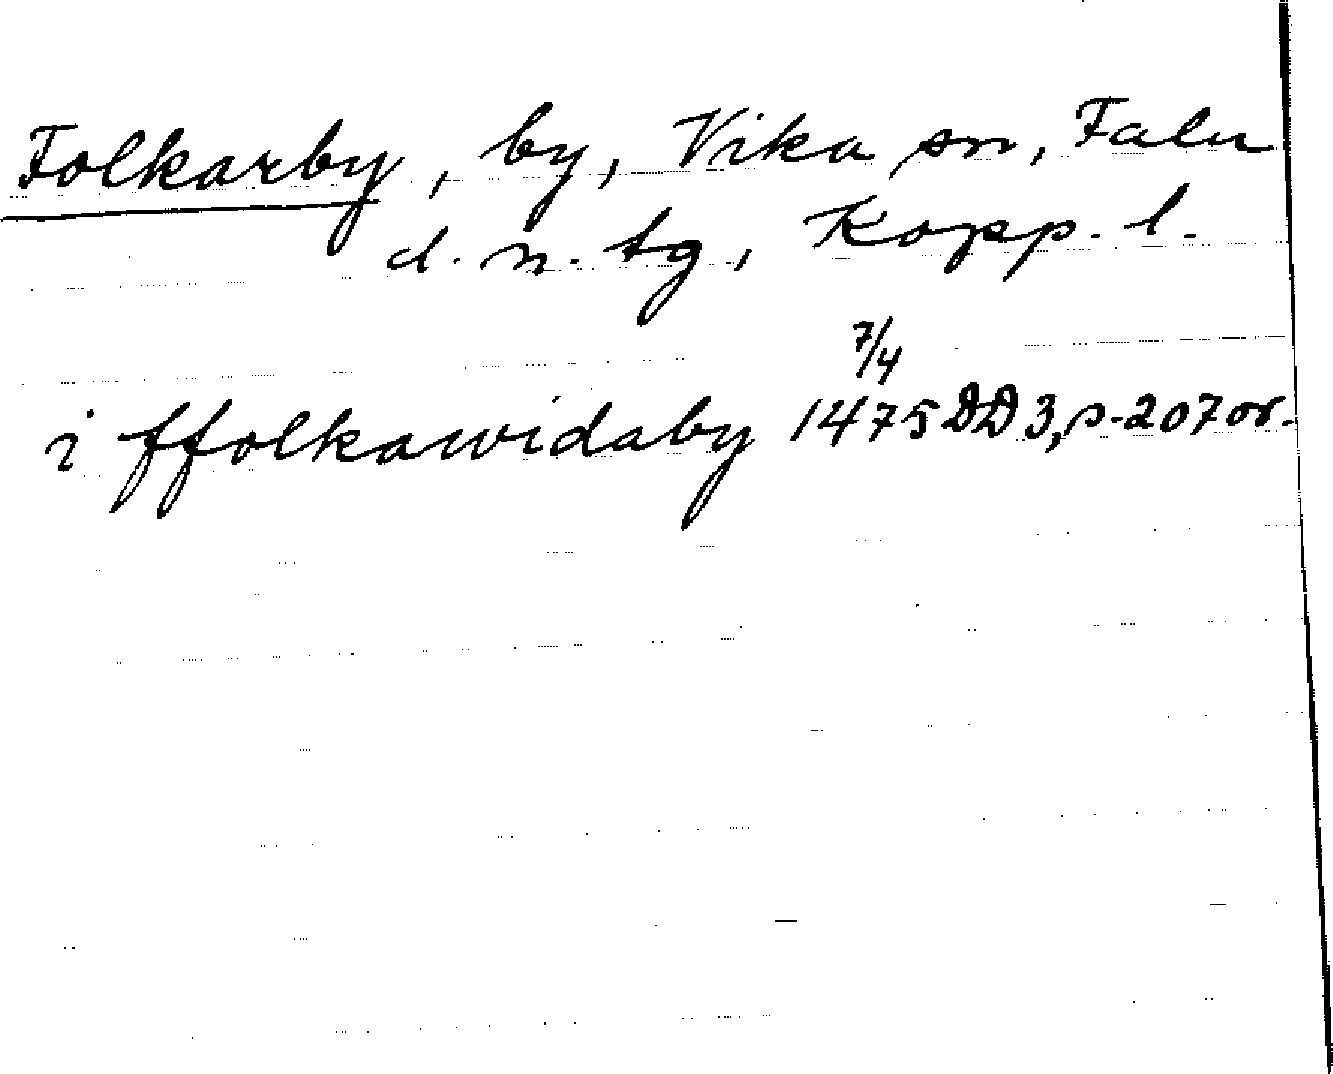 Folkarby, by, Vika sn, Falu
d. n. tg, Kopp. l.
7/4
i ffolkawidaby 1475 DD 3, s. 207 or.